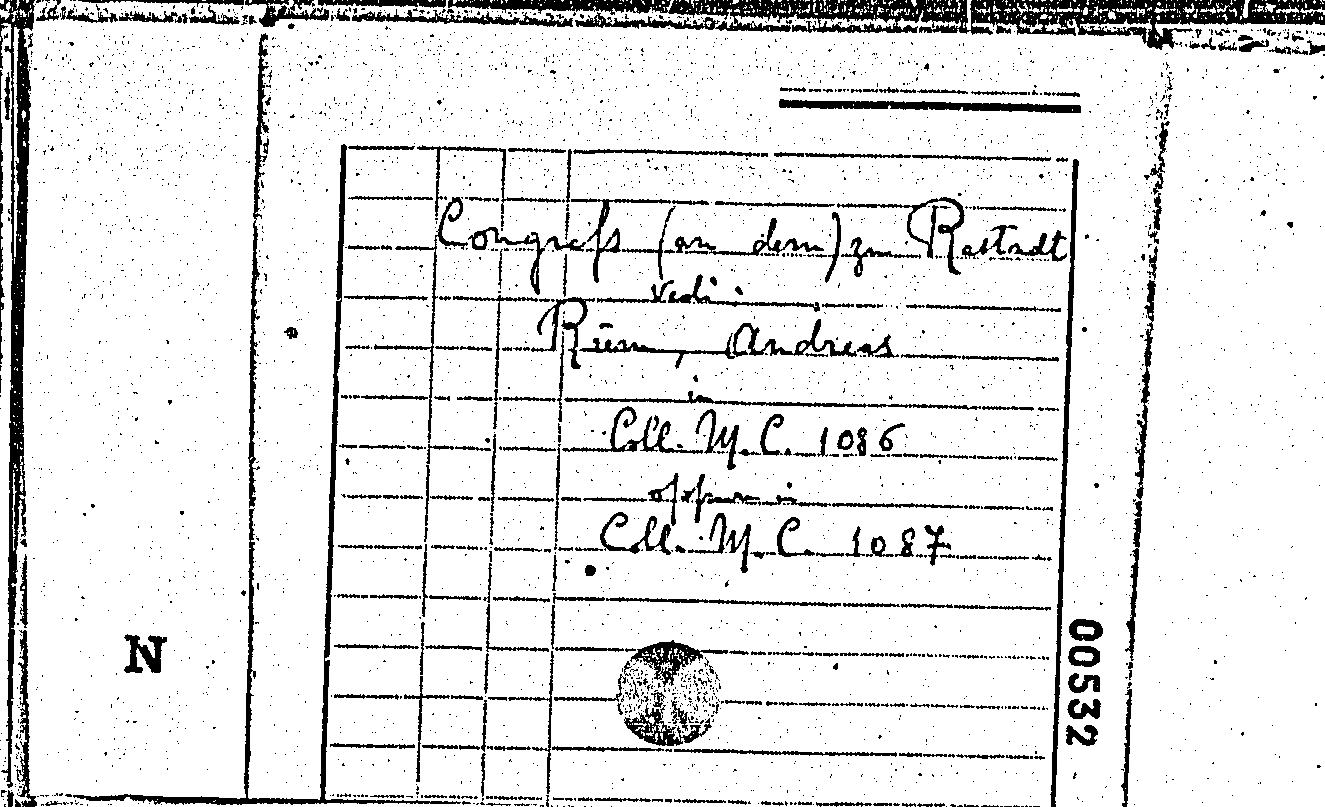 Congreſs (an dem) zu Rastadt
vedi:
Riem, Andreas
in
Coll. M.C. 1086
oppure in
Coll. M.C. 1087
N
00532